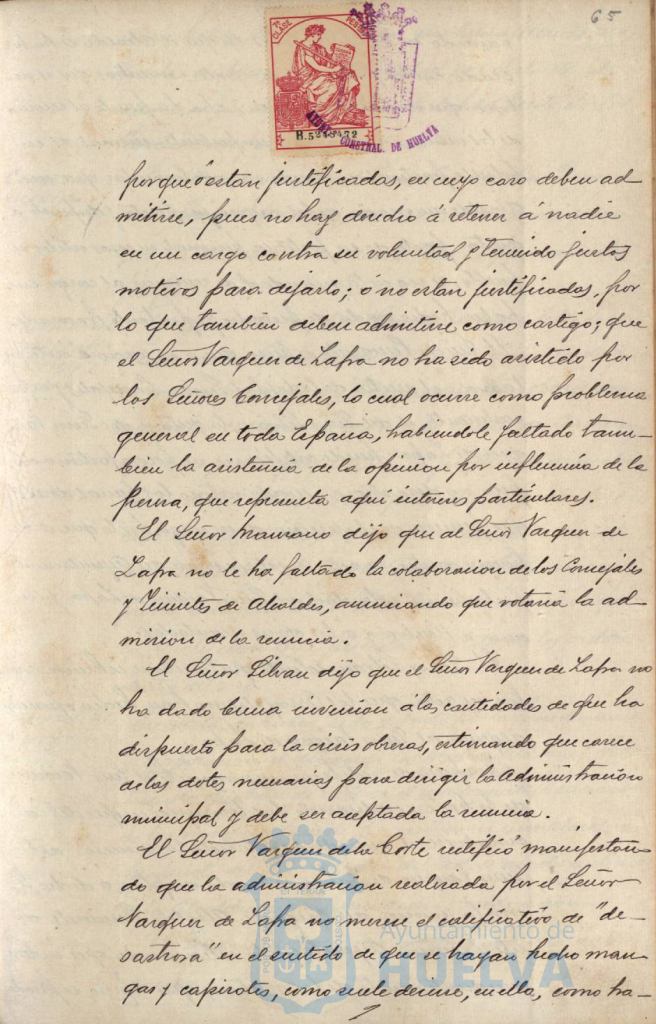 65
7ª CLASE
B.5248432
AYUNT CONSTNAL. DE HUELVA
porque ó estan justificadas, en cuyo caso deben ad-
mitirse, pues no hay derecho á retener á nadie
en un cargo contra su voluntad y teniendo justos
motivos para dejarlo; ó no estan justificadas, por
lo que tambien deben admitirse como castigo; que
el Señor Vazquez de Zafra no ha sido asistido por
los Señores Concejales, lo cual ocurre como problema
general en toda España, habiendole faltado tam-
bien la asistencia de la opinion por influencia de la
Prensa, que representa aquí intereses particulares.
El Señor Manzano dijo que al Señor Vazquez de
Zafra no le ha faltado la colaboracion de los Concejales
y Tenientes de Alcaldes, anunciando que votaría la ad-
mision de la renuncia.
El Señor Silvan dijo que el Señor Vazquez de Zafra no
ha dado buena inversion á las cantidades de que ha
dispuesto para la crisis obreras, estimando que carece
de las dotes necesarias para dirigir la Administracion
municipal y debe ser aceptada la renuncia.
El Señor Vazquez de la Corte rectificó manifestan-
do que la administracion realizada por el Señor
Vazquez de Zafra no merece el calificativo de "de-
sastrosa" en el sentido de que se hayan hecho man-
gas y capirotes, como suele decirse, en ella, como ha-
Ayuntamiento de
HUELVA